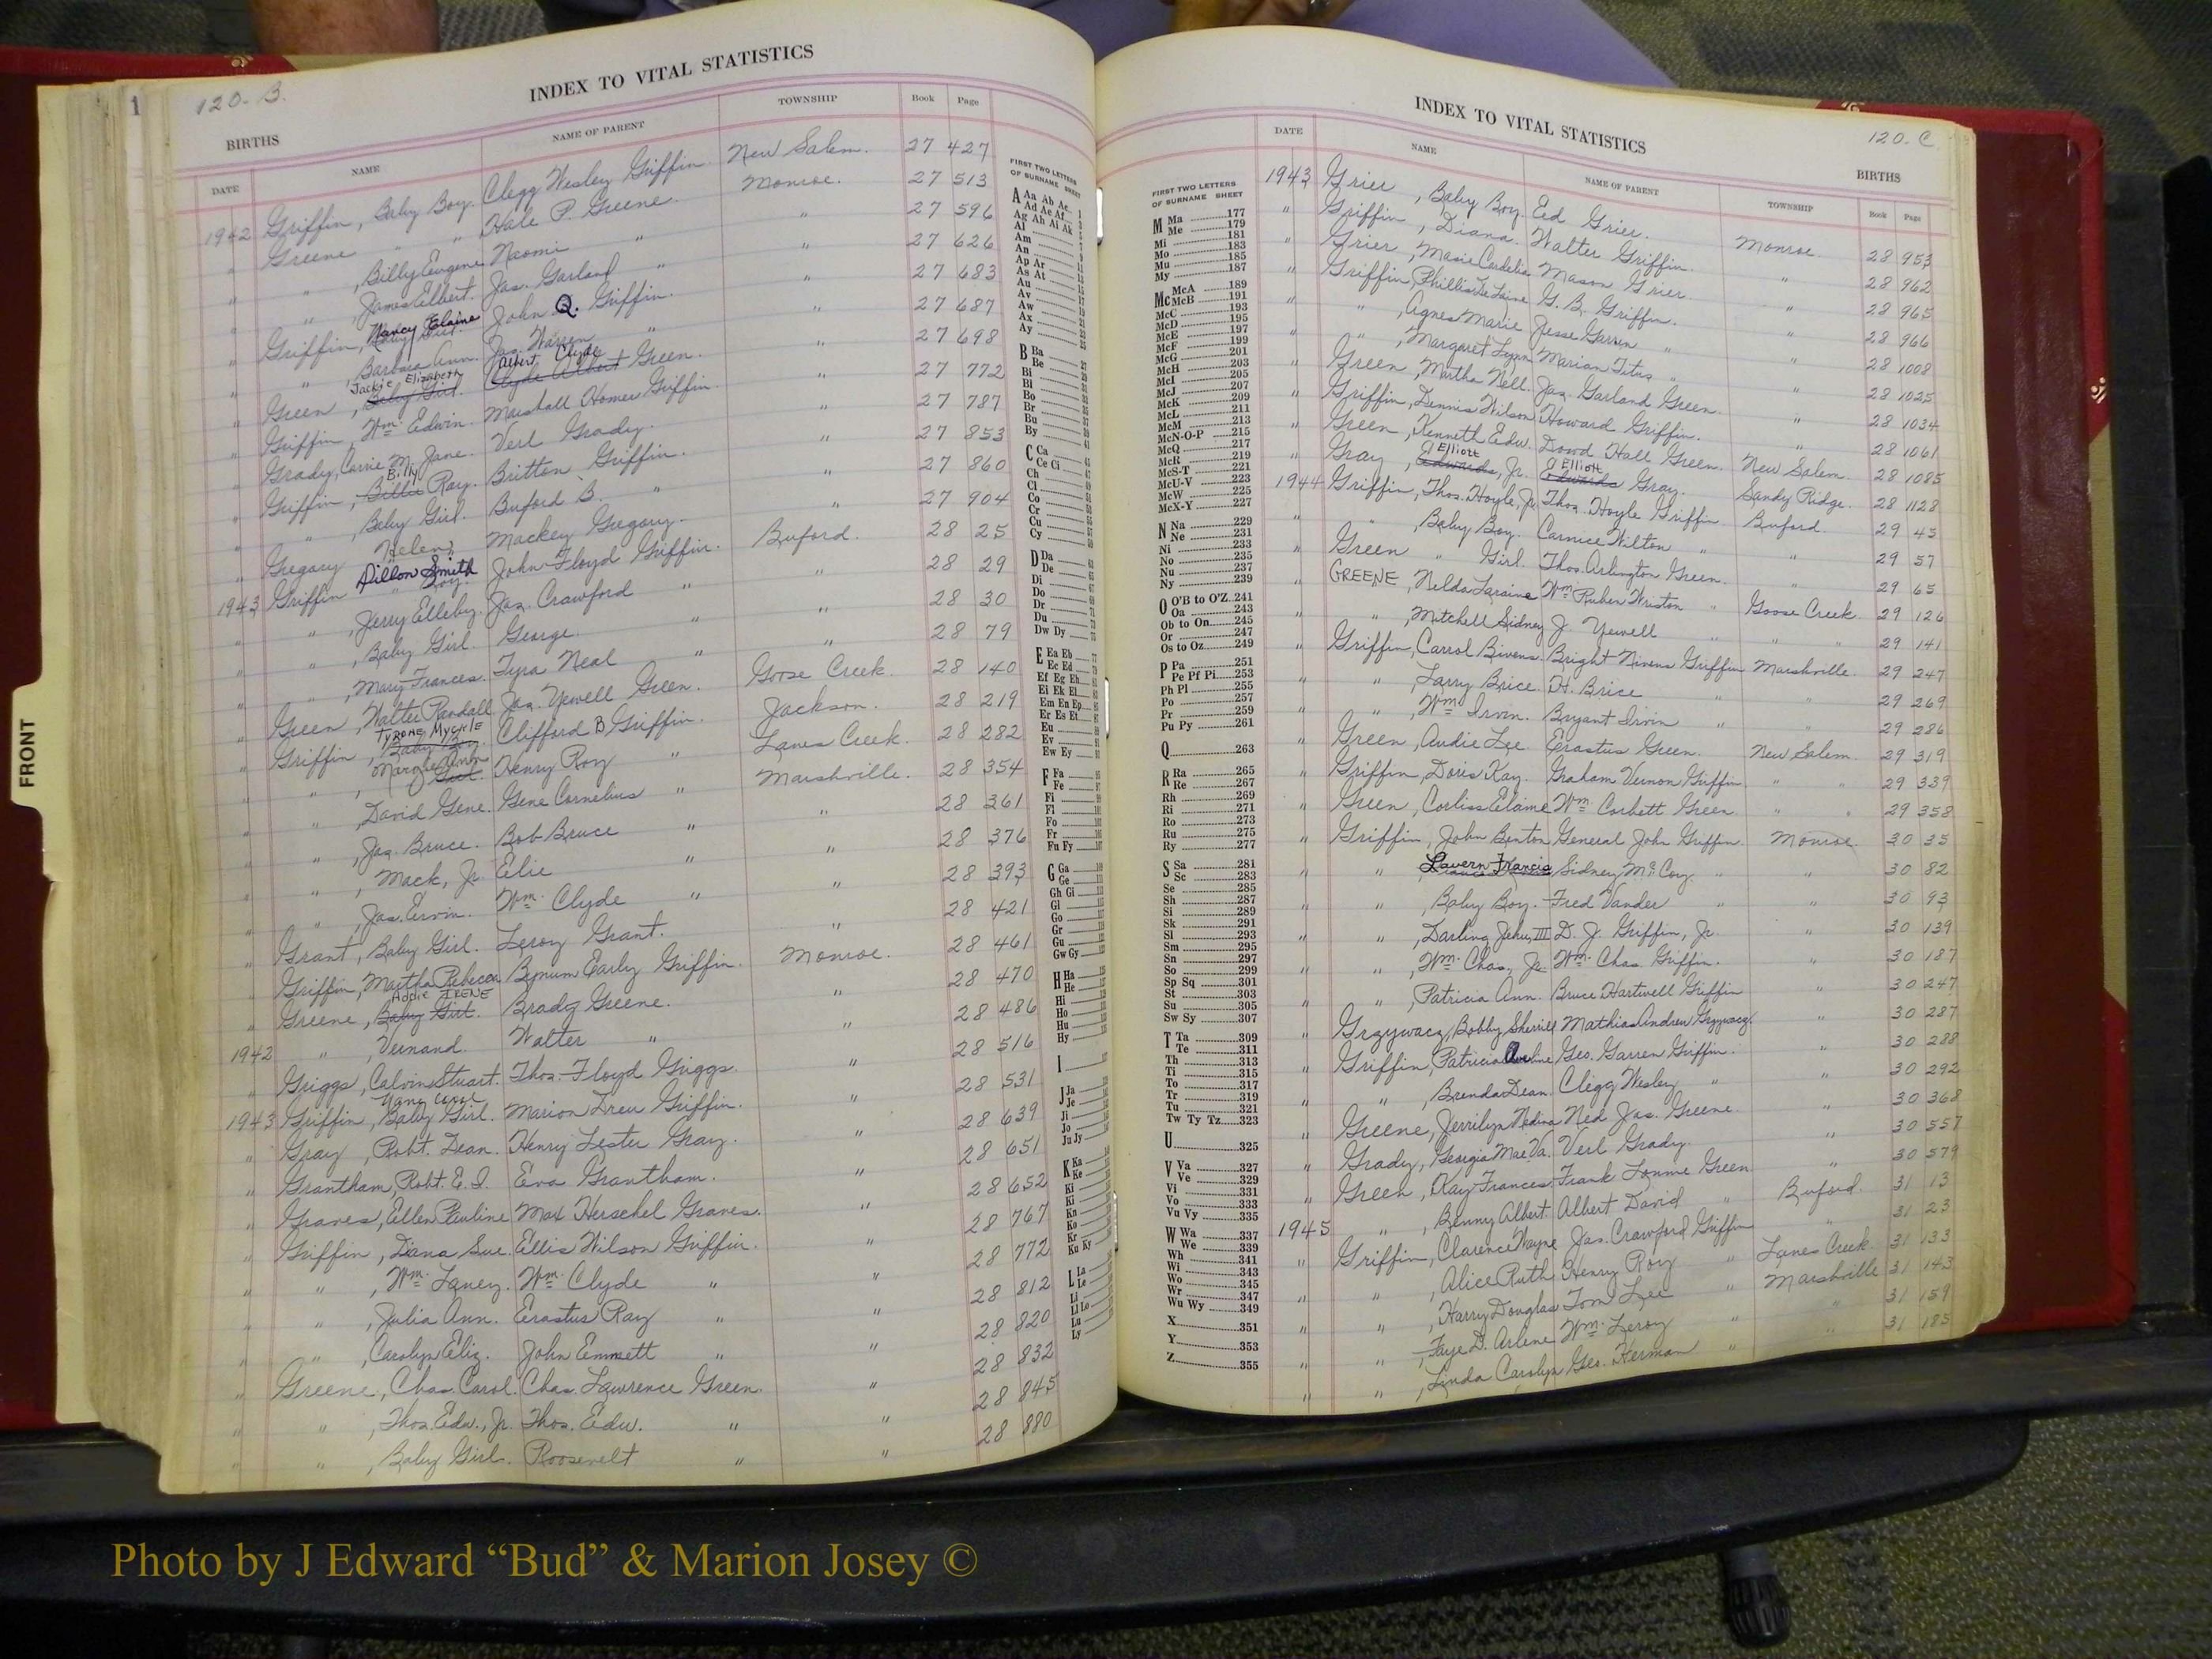 120-B.
INDEX TO VITAL STATISTICS
BIRTHS
DATE NAME NAME OF PARENT TOWNSHIP Book Page
1942 Griffin, Baby Boy. Clegg Wesley Griffin New Salem. 27 427
" Greene " " Hale P. Greene Monroe. 27 513
" " , Billy Eugene Naomi " " 27 596
" " , James Elbert. Jas. Garland " " 27 626
" Griffin, Nancy Elaine John Q. Griffin. " 27 683
" " , Barbara Ann. Jas. Warren " " 27 687
" Green, Jackie Elizabeth Baby Girl. Albert Clyde Clyde Albert Green. " 27 698
" Griffin, Wm. Edwin. Marshall Homer Griffin. " 27 772
" Grady, Carrie M. Jane. Verl Grady. " 27 787
" Griffin, Billy Billie Ray. Britton Griffin. " 27 853
" " , Baby Girl. Buford B. " " 27 860
" Gregory Helen Mackey Gregory. " 27 904
1943 Griffin Dillon Smith " Boy. John Floyd Griffin. Buford. 28 25
" " , Jerry Elleby. Jas. Crawford " " 28 29
" " , Baby Girl George. " " 28 30
" " , Mary Frances. Tyra Neal " " 28 79
" Green, Walter Randall Jas. Yewell Green. Goose Creek. 28 140
" Griffin, TYRONE MYCKLE Baby Boy Clifford B Griffin. Jackson. 28 219
" " , Margie Ann Girl Henry Roy " Lanes Creek. 28 282
" " , David Gene. Gene Cornelius " Marshville. 28 354
" " , Jas. Bruce. Bob Bruce " " 28 361
" " , Mack, Jr. Elie " " 28 376
" " , Jas. Ervin. Wm. Clyde " " 28 393
" Grant, Baby Girl. Leroy Grant. " 28 421
" Griffin, Martha Rebecca Bynum Early Griffin. Monroe. 28 461
" Greene, Addie IRENE Baby Girl. Brady Greene. " 28 470
1942 " , Vernand. Walter " " 28 486
" Griggs, Calvin Stuart. Thos. Floyd Griggs. " 28 516
1943 Griffin, Baby Girl. Marion Drew Griffin. " 28 531
" Gray, Robt. Dean. Henry Lester Gray. " 28 639
" Grantham, Robt. E. I. Eva Grantham. " 28 651
" Graves, Ellen Pauline Max Herschel Graves. " 28 652
" Griffin, Diana Sue. Ellis Wilson Griffin. " 28 767
" " , Wm. Laney. Wm. Clyde " " 28 772
" " , Julia Ann. Erastus Ray " " 28 812
" " , Carolyn Eliz. John Emmett " " 28 820
" Greene, Chas. Carol. Chas. Lawrence Green. " 28 832
" " , Thos. Edw., Jr. Thos. Edw. " " 28 845
" " , Baby Girl. Roosevelt " " 28 880
FIRST TWO LETTERS
OF SURNAME SHEET
A Aa Ab Ac
Ad Ae Af
Ag Ah Ai Ak
Al
Am
An
Ap Ar
As At
Au
Av
Aw
Ax
Ay
B Ba
Be
Bi
Bl
Bo
Br
Bu
By
C Ca
Ce Ci
Ch
Cl
Co
Cr
Cu
Cy
D Da
De
Di
Do
Dr
Du
Dw Dy
E Ea Eb
Ec Ed
Ef Eg Eh
Ei Ek El
Em En Ep
Er Es Et
Eu
Ev
Ew Ey
F Fa
Fe
Fi
Fl
Fo
Fr
Fu Fy
G Ga
Ge
Gh Gi
Gl
Go
Gr
Gu
Gw Gy
H Ha
He
Hi
Ho
Hu
Hy
I
J Ja
Je
Ji
Jo
Ju Jy
K Ka
Ke
Ki
Kl
Kn
Ko
Kr
Ku Ky
L La
Le
Li
Ll Lo
Lu
Ly
FRONT
INDEX TO VITAL STATISTICS
120-C
BIRTHS
DATE NAME NAME OF PARENT TOWNSHIP Book Page
FIRST TWO LETTERS
OF SURNAME SHEET
M Ma 177
Me 179
Mi 181
Mo 183
Mu 185
My 187
Mc McA 189
McB 191
McC 193
McD 195
McE 197
McF 199
McG 201
McH 203
McI 205
McJ 207
McK 209
McL 211
McM 213
McN-O-P 215
McQ 217
McR 219
McS-T 221
McU-V 223
McW 225
McX-Y 227
N Na 229
Ne 231
Ni 233
No 235
Nu 237
Ny 239
O O'B to O'Z 241
Oa 243
Ob to On 245
Or 247
Os to Oz 249
P Pa 251
Pe Pf Pi 253
Ph Pl 255
Po 257
Pr 259
Pu Py 261
Q 263
R Ra 265
Re 267
Rh 269
Ri 271
Ro 273
Ru 275
Ry 277
S Sa 281
Sc 283
Se 285
Sh 287
Si 289
Sk 291
Sl 293
Sm 295
Sn 297
So 299
Sp Sq 301
St 303
Su 305
Sw Sy 307
T Ta 309
Te 311
Th 313
Ti 315
To 317
Tr 319
Tu 321
Tw Ty Tz 323
U 325
V Va 327
Ve 329
Vi 331
Vo 333
Vu Vy 335
W Wa 337
We 339
Wh 341
Wi 343
Wo 345
Wr 347
Wu Wy 349
X 351
Y 353
Z 355
1943 Grier, Baby Boy. Ed Grier. Monroe. 28 953
" Griffin, Diana. Walter Griffin. " 28 962
" Grier, Masie Cordelia Mason Grier. " 28 965
" Griffin, Phillis G. B. Griffin. " 28 966
" " , Agnes Marie Jesse Garren " " 28 1008
" " , Margaret Lynn Marian Titus " " 28 1025
" Green, Martha Nell. Jas. Garland Green. " 28 1034
" Griffin, Dennis Wilson Howard Griffin. " 28 1061
" Green, Kenneth Edw. Dowd Hall Green. New Salem. 28 1085
" Gray, Elliott Edwards, Jr. Elliott Edwards Gray. Sandy Ridge. 28 1128
1944 Griffin, Thos. Hoyle, Jr. Thos. Hoyle Griffin Buford. 29 43
" " , Baby Boy. Carnice Wilton " " 29 57
" Green " Girl. Thos. Arlington Green. " 29 65
" GREENE, Nelda Loraine Wm. Ruben Winston " Goose Creek. 29 126
" " , Mitchell Sidney J. Yewell " " 29 141
" Griffin, Carrol Bivens. Bright Nivens Griffin Marshville. 29 247
" " , Larry Brice. H. Brice " " 29 269
" " , Wm. Irvin. Bryant Irvin " " 29 286
" Green, Audie Lee. Erastus Green. New Salem. 29 319
" Griffin, Doris Kay. Graham Vernon Griffin. " 29 339
" Green, Corliss Elaine Wm. Corbett Green. " 29 358
" Griffin, John Benton General John Griffin. Monroe. 30 35
" " Lavern Francis Sidney McCoy. " " 30 82
" " , Baby Boy. Fred Vander " " 30 93
" " , Darling Jehu, III D. J. Griffin, Jr. " 30 139
" " , Wm. Chas., Jr. Wm. Chas. Griffin. " 30 187
" " , Patricia Ann. Bruce Hartwell Griffin " 30 247
" Grzywacz, Bobby Sherrill Mathias Andrew Grzywacz. " 30 287
" Griffin, Patricia Geo. Garren Griffin. " 30 288
" " , Brenda Dean. Clegg Wesley " " 30 292
" Greene, Jerrilyn Nedina Ned Jas. Greene. " 30 368
" Grady, Georgia Mae Va. Verl Grady. " 30 557
" Green, Kay Frances Frank Lonnie Green " 30 579
1945 " , Benny Albert. Albert David " Buford. 31 13
" Griffin, Clarence Wayne Jas. Crawford Griffin " 31 23
" " , Alice Ruth Henry Roy " Lanes Creek 31 133
" " , Harry Douglas Tom Lee " Marshville 31 143
" " , Faye D. Arlene Wm. Leroy " " 31 159
" " , Linda Carolyn Geo. Herman " " 31 185
Photo by J Edward “Bud” & Marion Josey ©